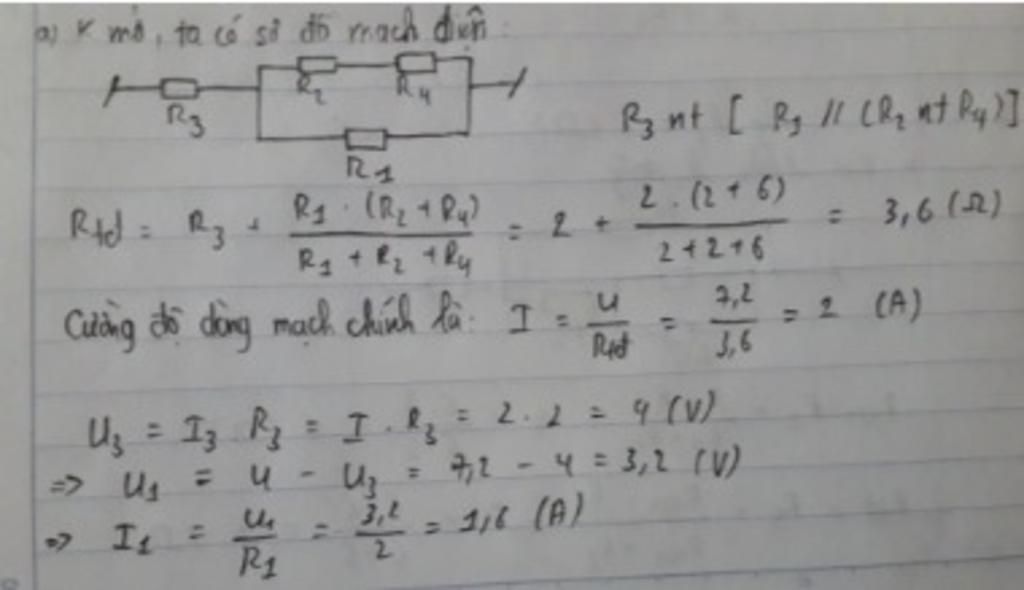 a) K mở, ta có sơ đồ mạch điện:
R2 R4
R3
R1
R3 nt [ R1 // (R2 nt R4)]
Rtđ = R3 + R1 . (R2 + R4) / R1 + R2 + R4 = 2 + 2 . (2 + 6) / 2 + 2 + 6 = 3,6 (Ω)
Cường độ dòng mạch chính là: I = U / Rtđ = 7,2 / 3,6 = 2 (A)
U3 = I3 R3 = I . R3 = 2 . 2 = 4 (V)
=> U1 = U - U3 = 7,2 - 4 = 3,2 (V)
=> I1 = U1 / R1 = 3,2 / 2 = 1,6 (A)